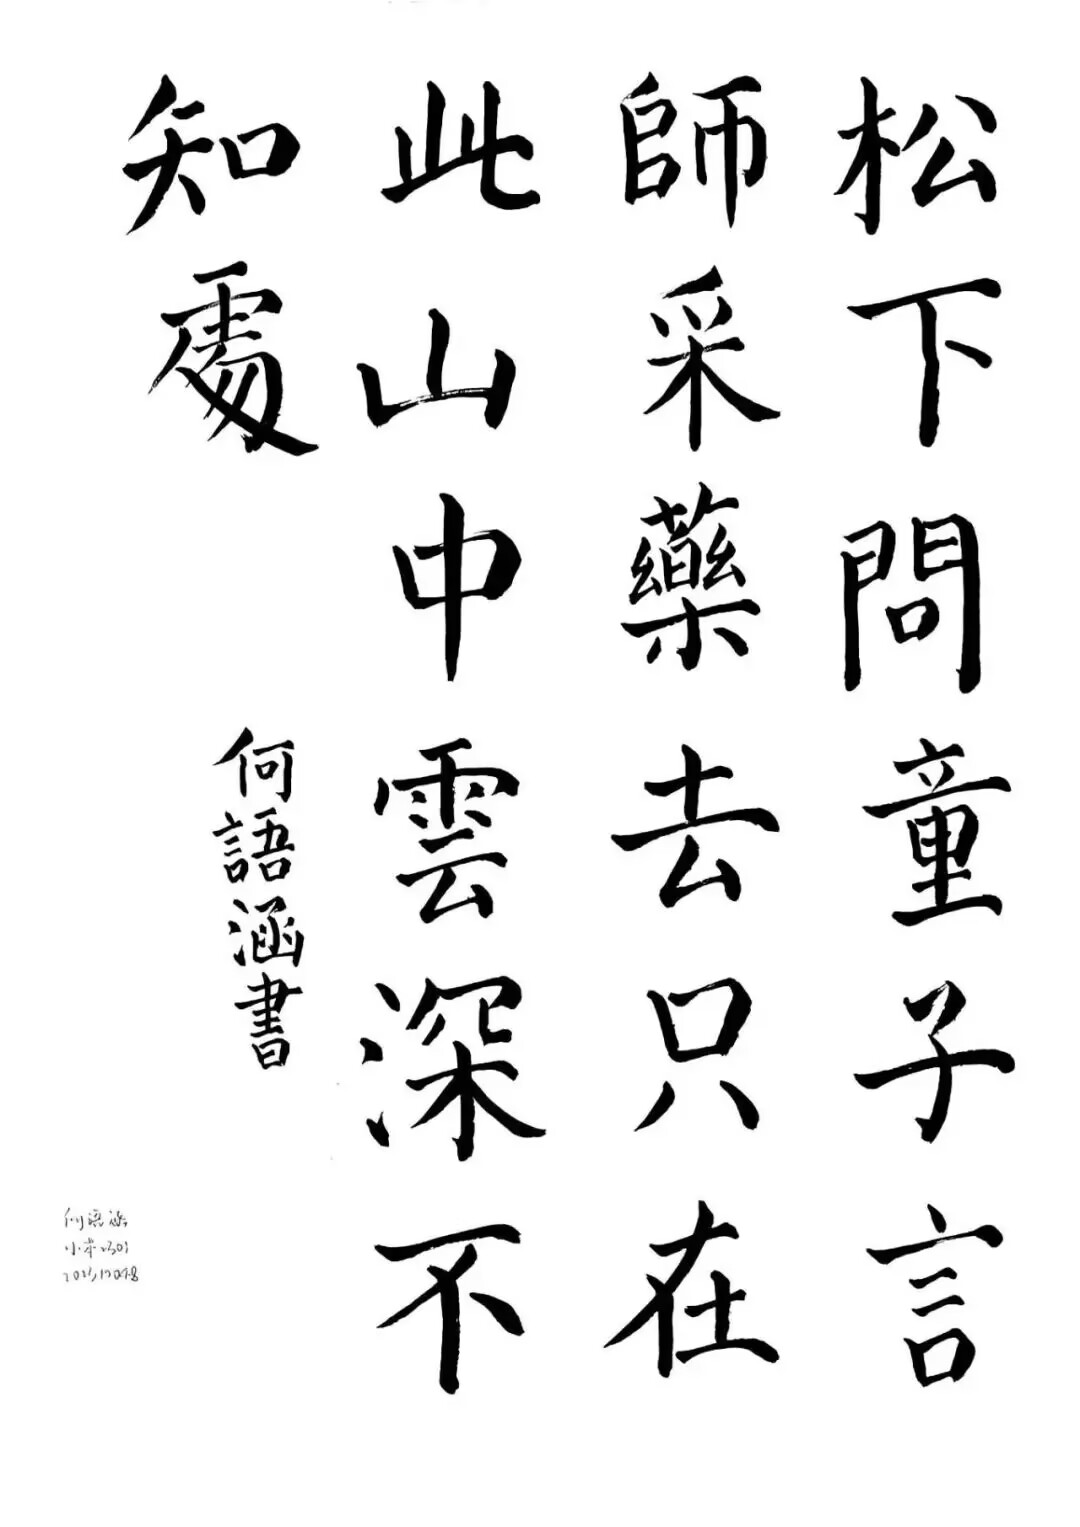 松下問童子言
師采藥去只在
此山中雲深不
知處
何語涵書
何語涵